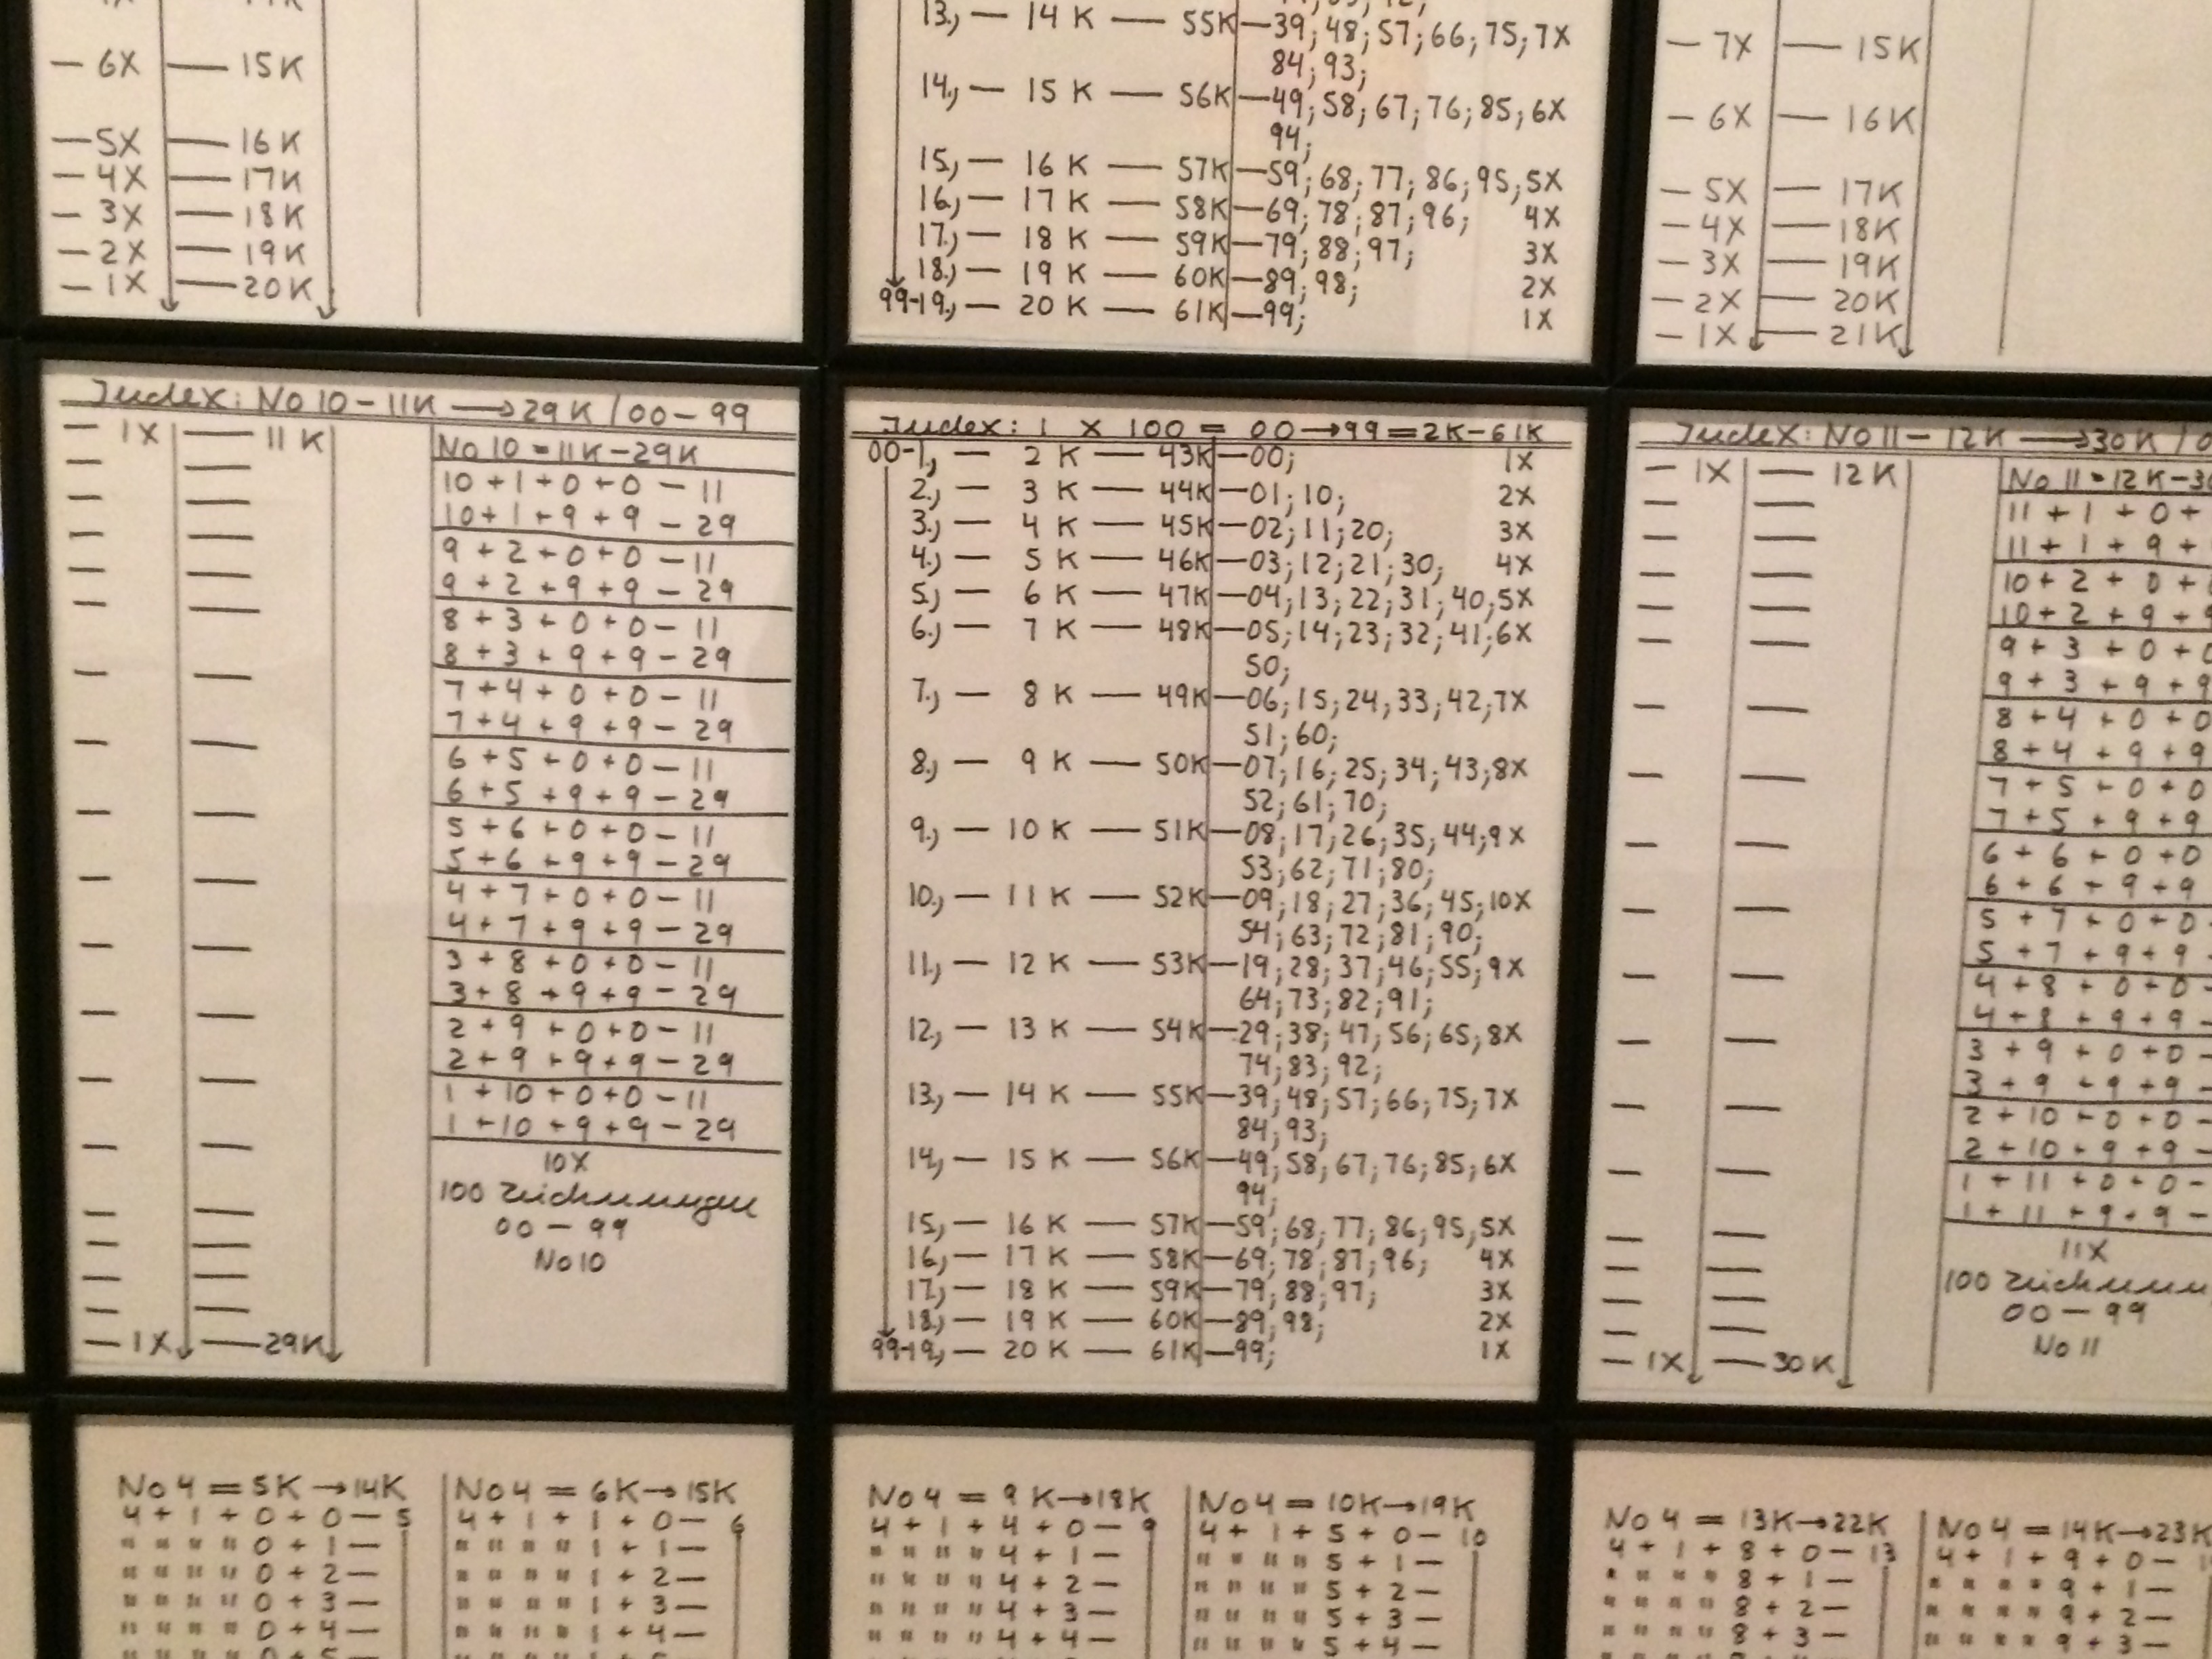 — 6X — 15K
— 5X — 16K
— 4X — 17K
— 3X — 18K
— 2X — 19K
— 1X — 20K
13.) — 14 K — 55K — 39; 48; 57; 66; 75; 7X
84; 93;
14.) — 15 K — 56K — 49; 58; 67; 76; 85; 6X
94;
15.) — 16 K — 57K — 59; 68; 77; 86; 95; 5X
16.) — 17 K — 58K — 69; 78; 87; 96; 4X
17.) — 18 K — 59K — 79; 88; 97; 3X
18.) — 19 K — 60K — 89; 98; 2X
99-19.) — 20 K — 61K — 99; 1X
— 7X — 15K
— 6X — 16K
— 5X — 17K
— 4X — 18K
— 3X — 19K
— 2X — 20K
— 1X — 21K
Index: No 10 – 11K → 29K / 00 – 99
— 1X — 11K
No 10 = 11K – 29K
10 + 1 + 0 + 0 – 11
10 + 1 + 9 + 9 – 29
9 + 2 + 0 + 0 – 11
9 + 2 + 9 + 9 – 29
8 + 3 + 0 + 0 – 11
8 + 3 + 9 + 9 – 29
7 + 4 + 0 + 0 – 11
7 + 4 + 9 + 9 – 29
6 + 5 + 0 + 0 – 11
6 + 5 + 9 + 9 – 29
5 + 6 + 0 + 0 – 11
5 + 6 + 9 + 9 – 29
4 + 7 + 0 + 0 – 11
4 + 7 + 9 + 9 – 29
3 + 8 + 0 + 0 – 11
3 + 8 + 9 + 9 – 29
2 + 9 + 0 + 0 – 11
2 + 9 + 9 + 9 – 29
1 + 10 + 0 + 0 – 11
1 + 10 + 9 + 9 – 29
10X
100 Zeichnungen
00 – 99
No 10
— 1X — 29K
Index: 1 X 100 = 00 → 99 = 2K – 61K
00-1.) — 2 K — 43K — 00; 1X
2.) — 3 K — 44K — 01; 10; 2X
3.) — 4 K — 45K — 02; 11; 20; 3X
4.) — 5 K — 46K — 03; 12; 21; 30; 4X
5.) — 6 K — 47K — 04; 13; 22; 31; 40; 5X
6.) — 7 K — 48K — 05; 14; 23; 32; 41; 6X
50;
7.) — 8 K — 49K — 06; 15; 24; 33; 42; 7X
51; 60;
8.) — 9 K — 50K — 07; 16; 25; 34; 43; 8X
52; 61; 70;
9.) — 10 K — 51K — 08; 17; 26; 35; 44; 9X
53; 62; 71; 80;
10.) — 11 K — 52K — 09; 18; 27; 36; 45; 10X
54; 63; 72; 81; 90;
11.) — 12 K — 53K — 19; 28; 37; 46; 55; 9X
64; 73; 82; 91;
12.) — 13 K — 54K — 29; 38; 47; 56; 65; 8X
74; 83; 92;
13.) — 14 K — 55K — 39; 48; 57; 66; 75; 7X
84; 93;
14.) — 15 K — 56K — 49; 58; 67; 76; 85; 6X
94;
15.) — 16 K — 57K — 59; 68; 77; 86; 95; 5X
16.) — 17 K — 58K — 69; 78; 87; 96; 4X
17.) — 18 K — 59K — 79; 88; 97; 3X
18.) — 19 K — 60K — 89; 98; 2X
99-19.) — 20 K — 61K — 99; 1X
Index: No 11 – 12K → 30K / 0
— 1X — 12K
No 11 = 12K – 30
11 + 1 + 0 +
11 + 1 + 9 +
10 + 2 + 0 +
10 + 2 + 9 + 9
9 + 3 + 0 + 0
9 + 3 + 9 + 9
8 + 4 + 0 + 0
8 + 4 + 9 + 9
7 + 5 + 0 + 0
7 + 5 + 9 + 9
6 + 6 + 0 + 0
6 + 6 + 9 + 9
5 + 7 + 0 + 0
5 + 7 + 9 + 9 –
4 + 8 + 0 + 0 –
4 + 8 + 9 + 9 –
3 + 9 + 0 + 0 –
3 + 9 + 9 + 9 –
2 + 10 + 0 + 0 –
2 + 10 + 9 + 9 –
1 + 11 + 0 + 0 –
1 + 11 + 9 + 9 –
11X
100 Zeichnun
00 – 99
No 11
— 1X — 30K
No 4 = 5K → 14K
4 + 1 + 0 + 0 — 5
" " " " 0 + 1 —
" " " " 0 + 2 —
" " " " 0 + 3 —
" " " " 0 + 4 —
No 4 = 6K → 15K
4 + 1 + 1 + 0 — 6
" " " " 1 + 1 —
" " " " 1 + 2 —
" " " " 1 + 3 —
" " " " 1 + 4 —
No 4 = 9K → 18K
4 + 1 + 4 + 0 — 9
" " " " 4 + 1 —
" " " " 4 + 2 —
" " " " 4 + 3 —
" " " " 4 + 4 —
No 4 = 10K → 19K
4 + 1 + 5 + 0 — 10
" " " " 5 + 1 —
" " " " 5 + 2 —
" " " " 5 + 3 —
" " " " 5 + 4 —
No 4 = 13K → 22K
4 + 1 + 8 + 0 — 13
" " " " 8 + 1 —
" " " " 8 + 2 —
" " " " 8 + 3 —
No 4 = 14K → 23K
4 + 1 + 9 + 0 —
" " " " 9 + 1 —
" " " " 9 + 2 —
" " " " 9 + 3 —